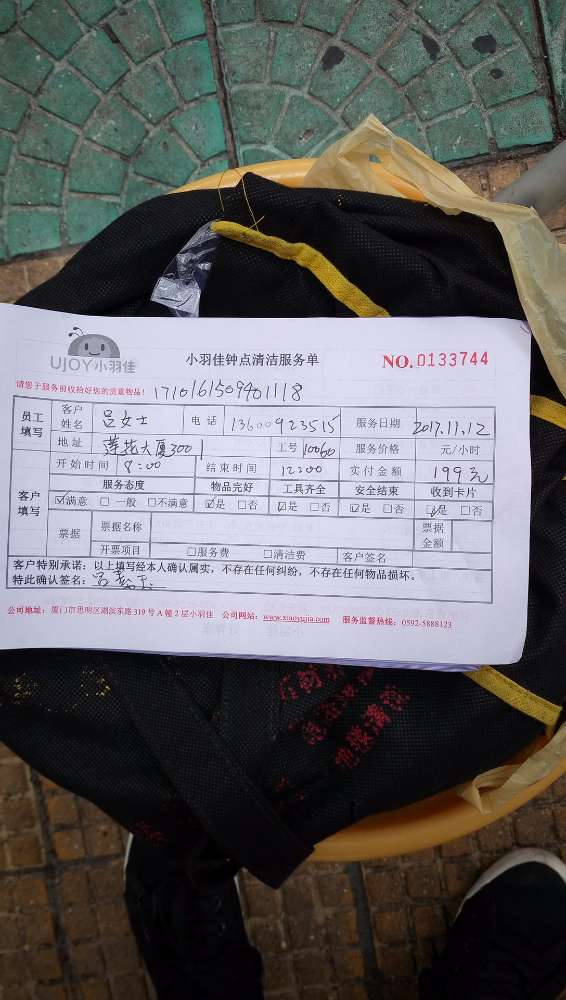 UJOY小羽佳 小羽佳钟点清洁服务单 NO.0133744
请您于服务前收拾好您的贵重物品! 171016150940 1118
员工填写 客户姓名 吕女士 电话 13600923515 服务日期 2017.11.12
地址 莲花大厦3001 工号 10060 服务价格 元/小时
客户填写 开始时间 8:00 结束时间 12:00 实付金额 199元
服务态度 物品完好 工具齐全 安全结束 收到卡片
☑满意 □一般 □不满意 ☑是 □否 ☑是 □否 ☑是 □否 ☑是 □否
票据 票据名称 票据金额
开票项目 □服务费 □清洁费 客户签名
客户特别承诺: 以上填写经本人确认属实, 不存在任何纠纷, 不存在任何物品损坏。
特此确认签名:
公司地址: 厦门市思明区湖滨东路319号A幢2层小羽佳 公司网站: www.xiaoyujia.com 服务监督热线: 0592-5888123